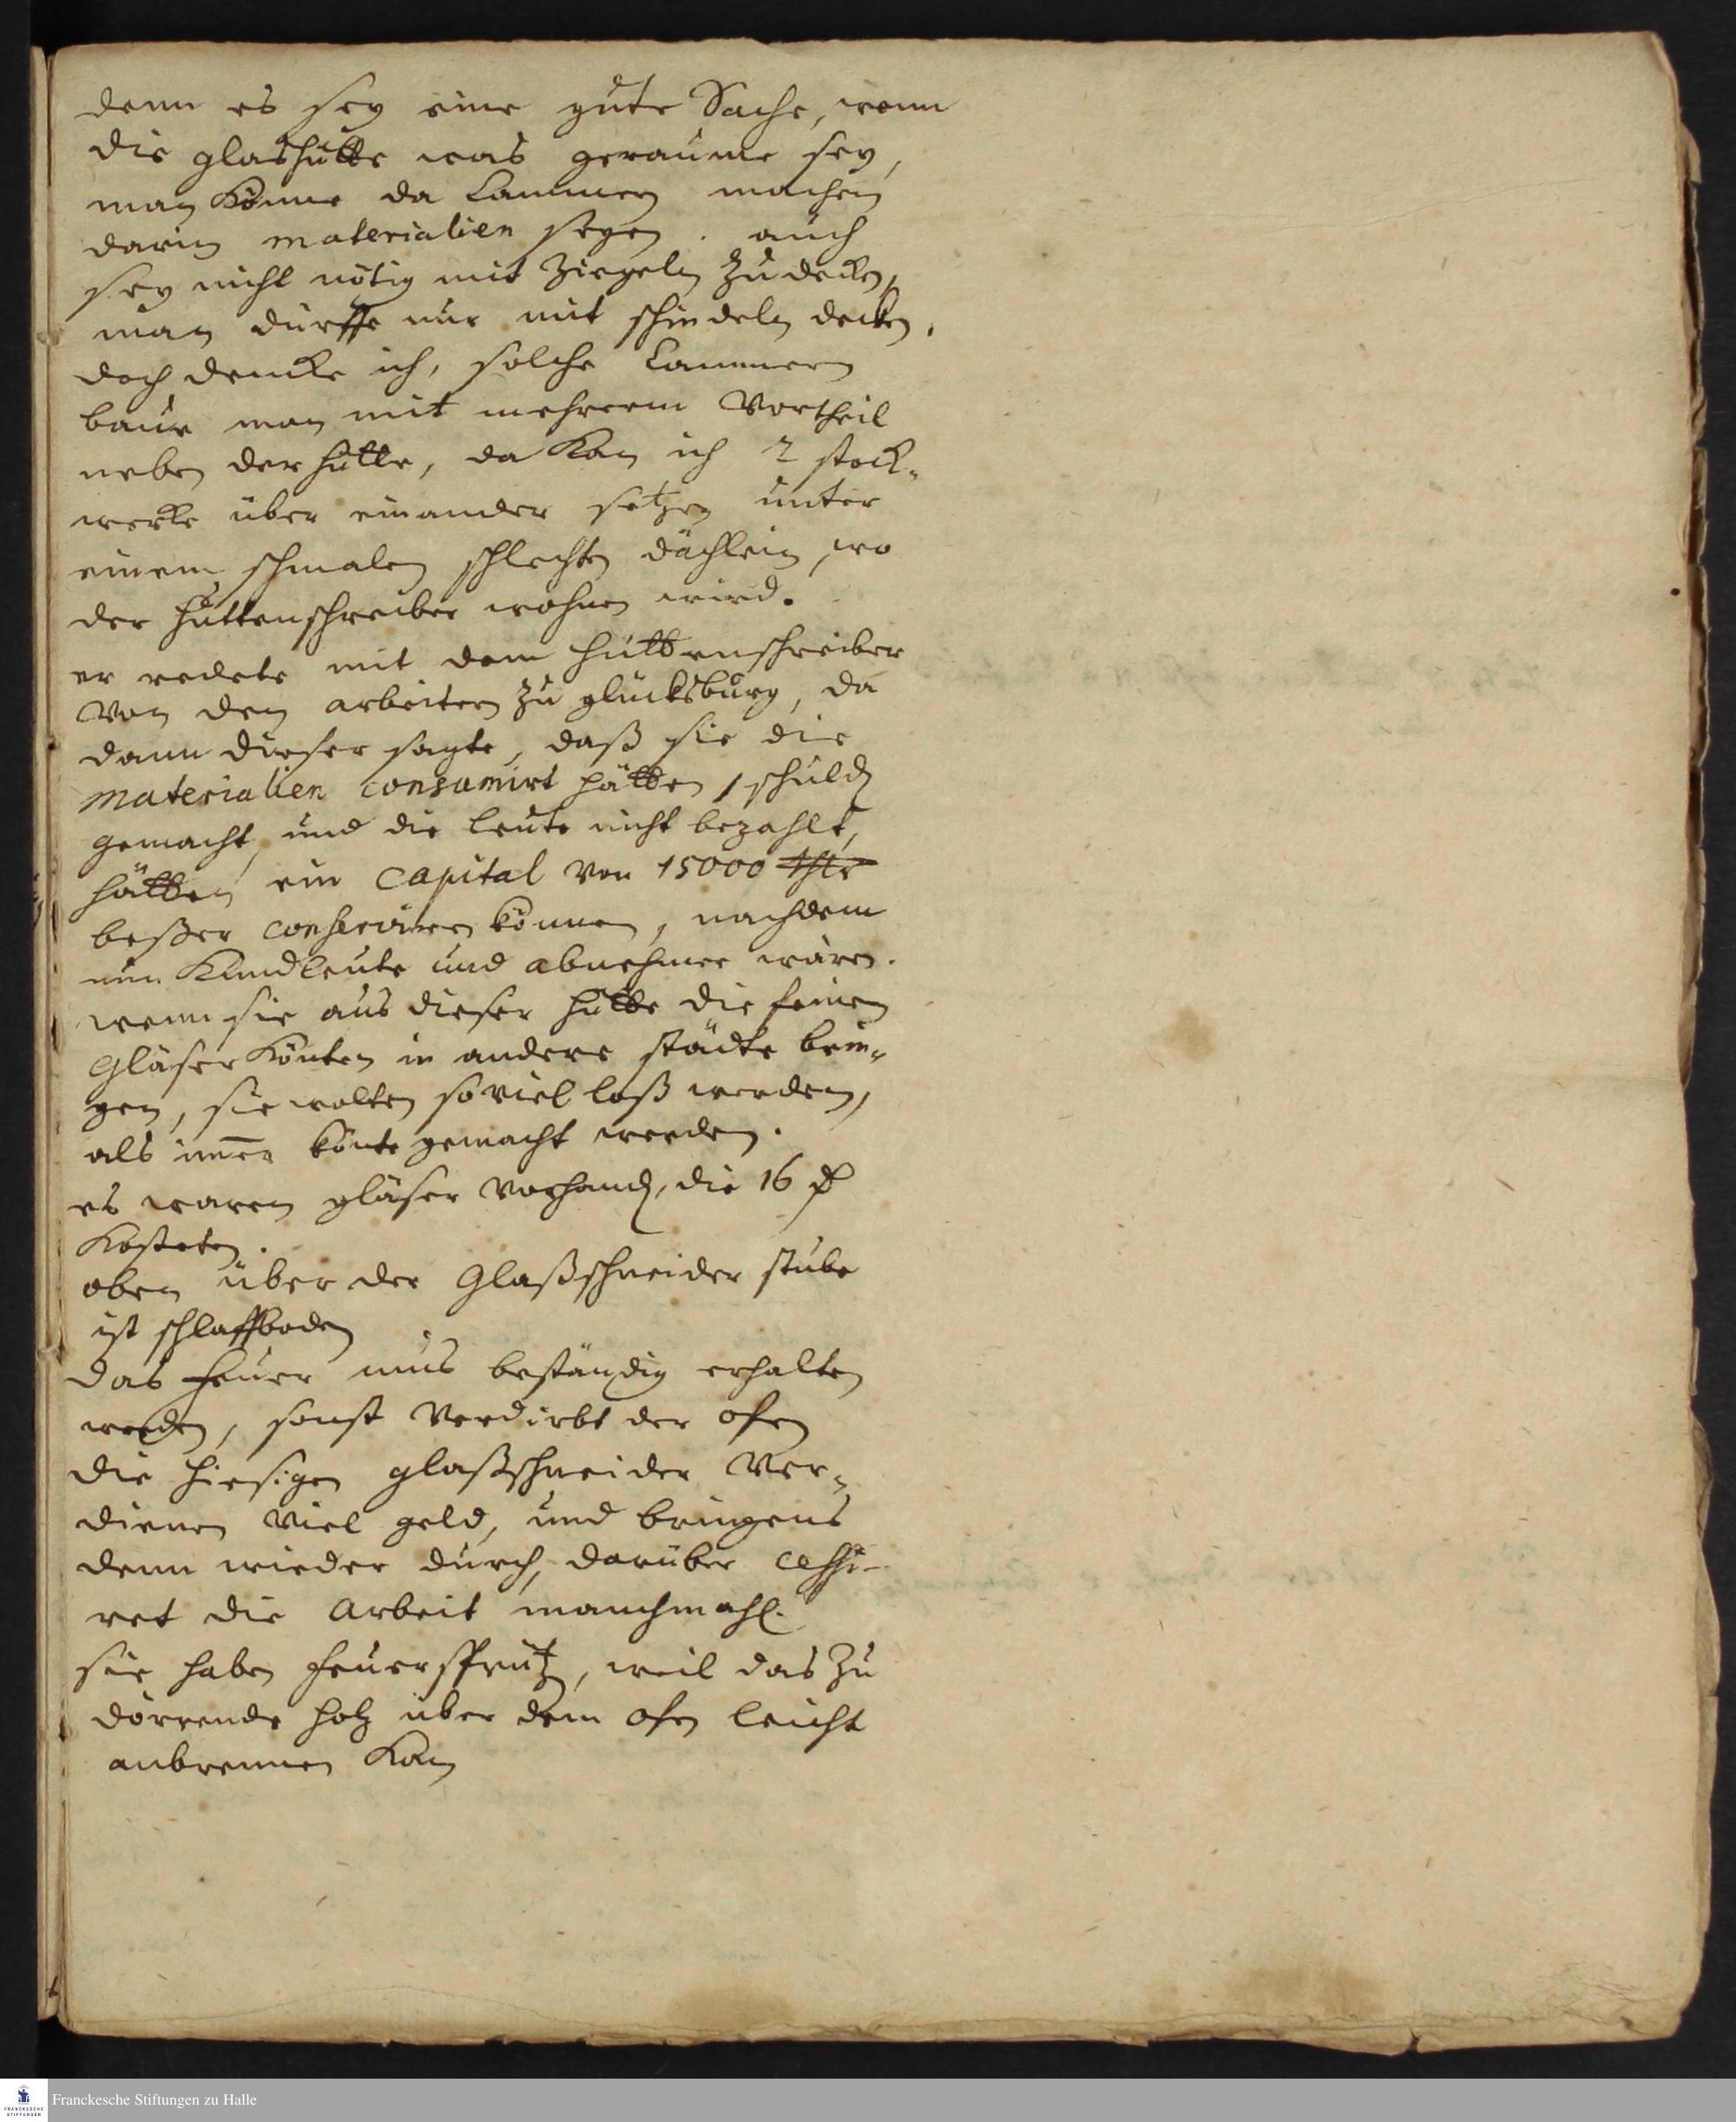 denn es sey eine gute Sache, wenn
die glashütte was geraume sey,
man könne da Cammern machen
darin materialien seyen. auch
sey nicht nötig mit Ziegeln zu decken,
man dürffe nur mit schindeln decken,
doch dencke ich, solche Cammern
baue man mit mehrerm Vortheil
neben der hütte, da kan ich 2 stock-
wercke über einander setzen unter
einem schmalen schlechten dächlein, wo
der hüttenschreiber wohnen wird.
er redete mit dem hüttenschreiber
von den arbeitern zu glücksburg, da
dann dieser sagte, daß sie die
materialien consumirt hätten, schulden
gemacht, und die leute nicht bezahlt,
hätten ein Capital von 15000 thlr
beßer conserviren können, nachdem
nun Kundleute und abnehmer wären.
wenn sie aus dieser hütte die feinen
Gläser könten in andere städte brin-
gen, sie wolten so viel loß werden,
als im̄er könte gemacht werden.
es waren gläser vorhanden, die 16
kosteten.
oben über der Glaßschneider stube
ist schlaffboden
das feuer mus beständig erhalten
werden, sonst verdirbt der ofen
die hiesigen glaßschneider ver-
dienen viel geld, und bringens
denn wieder durch, darüber cessi-
ret die Arbeit manchmahl.
sie haben feuersprütz, weil das zu
dörrende holz über dem ofen leicht
anbrennen kan
Franckesche Stiftungen zu Halle